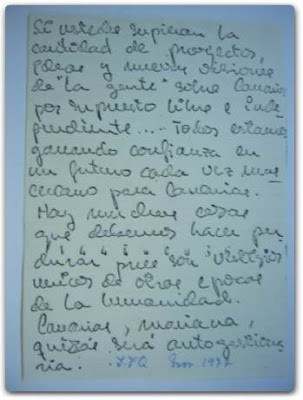 Si ustedes supieran la
cantidad de proyectos,
ideas y nuevas visiones
de "la gente" sobre Canarias
por supuesto libre e inde-
pendiente.... Todos estamos
ganando confianza en
un futuro cada vez mas
cercano para Canarias.
Hay muchas cosas
que debemos hacer per
durar pues son "vestigios"
unicos de otras epocas
de la humanidad.
Canarias, mañana,
quizás será autogestiona
ria.